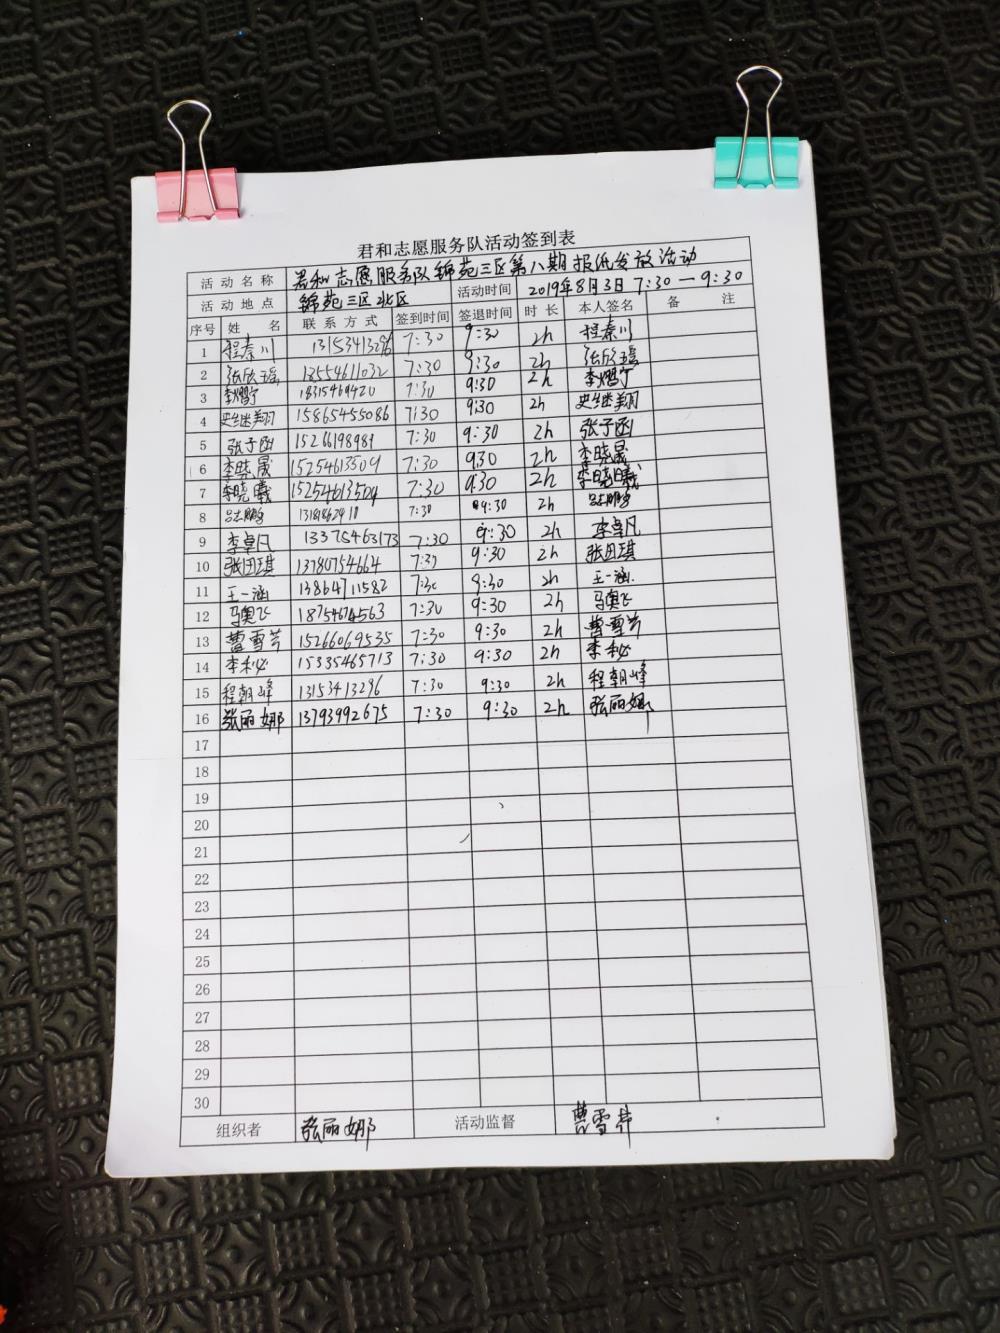 君和志愿服务队活动签到表
活动名称 君和志愿服务队锦苑三区第八期报纸发放活动
活动地点 锦苑三区北区 活动时间 2019年8月3日 7:30—9:30
序号 姓名 联系方式 签到时间 签退时间 时长 本人签名 备注
1 程秦川 13153413296 7:30 9:30 2h 程秦川
2 张欣瑶 13554611032 7:30 9:30 2h 张欣瑶
3 李熠宁 18315469420 7:30 9:30 2h 李熠宁
4 史继翔 15865455086 7:30 9:30 2h 史继翔
5 张子函 15266198989 7:30 9:30 2h 张子函
6 李晓晟 15254613509 7:30 9:30 2h 李晓晟
7 李晓曦 15254613509 7:30 9:30 2h 李晓曦
8 7:30 9:30 2h
9 李卓凡 13375463173 7:30 9:30 2h 李卓凡
10 张田琪 13780754664 7:30 9:30 2h 张田琪
11 王一涵 13864711582 7:30 9:30 2h 王一涵
12 马奥飞 18754674563 7:30 9:30 2h 马奥飞
13 曹雪芹 15266069535 7:30 9:30 2h 曹雪芹
14 李利必 15335465713 7:30 9:30 2h 李利必
15 程朝峰 13153413296 7:30 9:30 2h 程朝峰
16 张丽娜 13793992675 7:30 9:30 2h 张丽娜
17
18
19
20
21
22
23
24
25
26
27
28
29
30
组织者 张丽娜 活动监督 曹雪芹